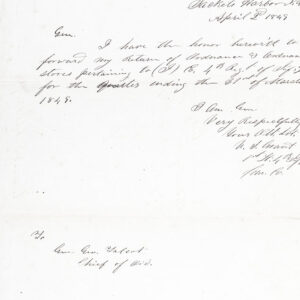 Sackets Harbor N.Y.
April 2d 1849
Gen.
I have the honor herewith to
forward my Return of Ordnance & Ordnance
stores pertaining to (I) Co, 4th Reg. of Inf.
for the quarter ending the 31st of March
1849.
I Am Gen.
Very Respectfully
Your Obt. Svt.
U. S. Grant
1st Lt. 4th Inf.
To
Gen. Geo. Talcott
Chief of Ord.